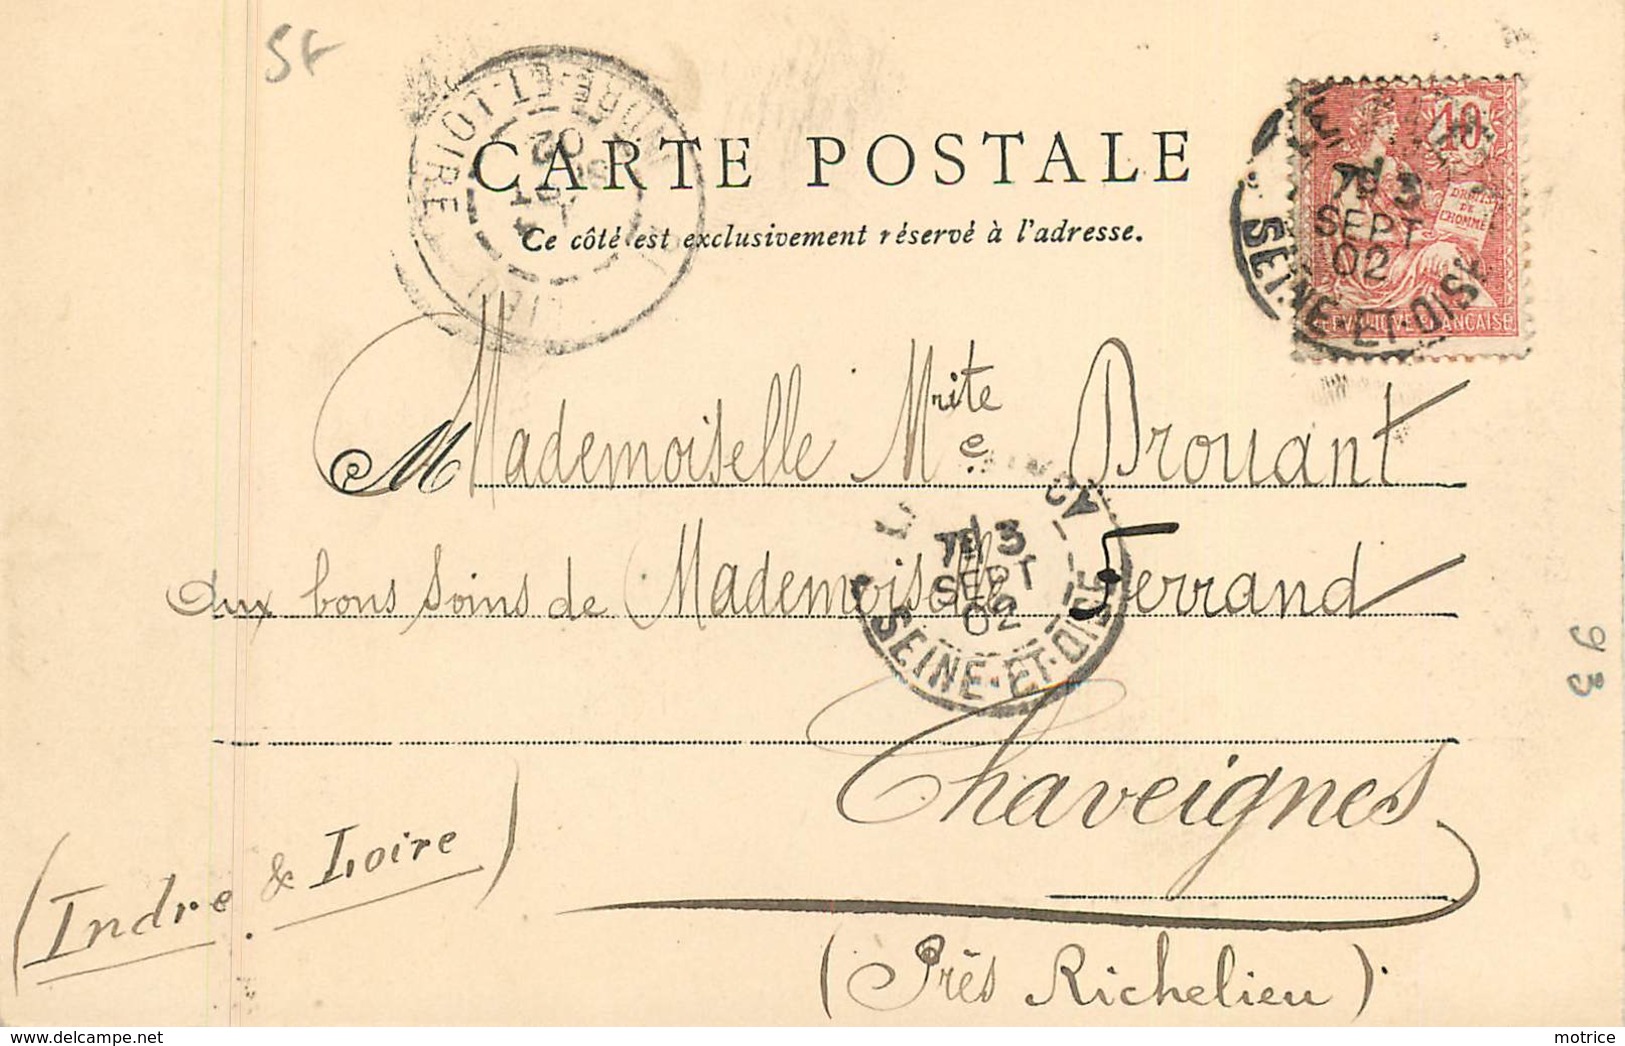 5F
INDRE-ET-LOIRE
02
CARTE POSTALE
Ce côté est exclusivement réservé à l'adresse.
10
DROITS
DE
L'HOMME
REPUBLIQUE FRANÇAISE
7E 3
SEPT
02
SEINE-ET-OISE
M Mademoiselle Mrite e Drouant
aux bons soins de Mademoiselle Ferrand
7E 3
SEPT
02
SEINE-ET-OISE
Chaveignes
(Indre & Loire)
(Près Richelieu).
93
delcampe.net
motrice